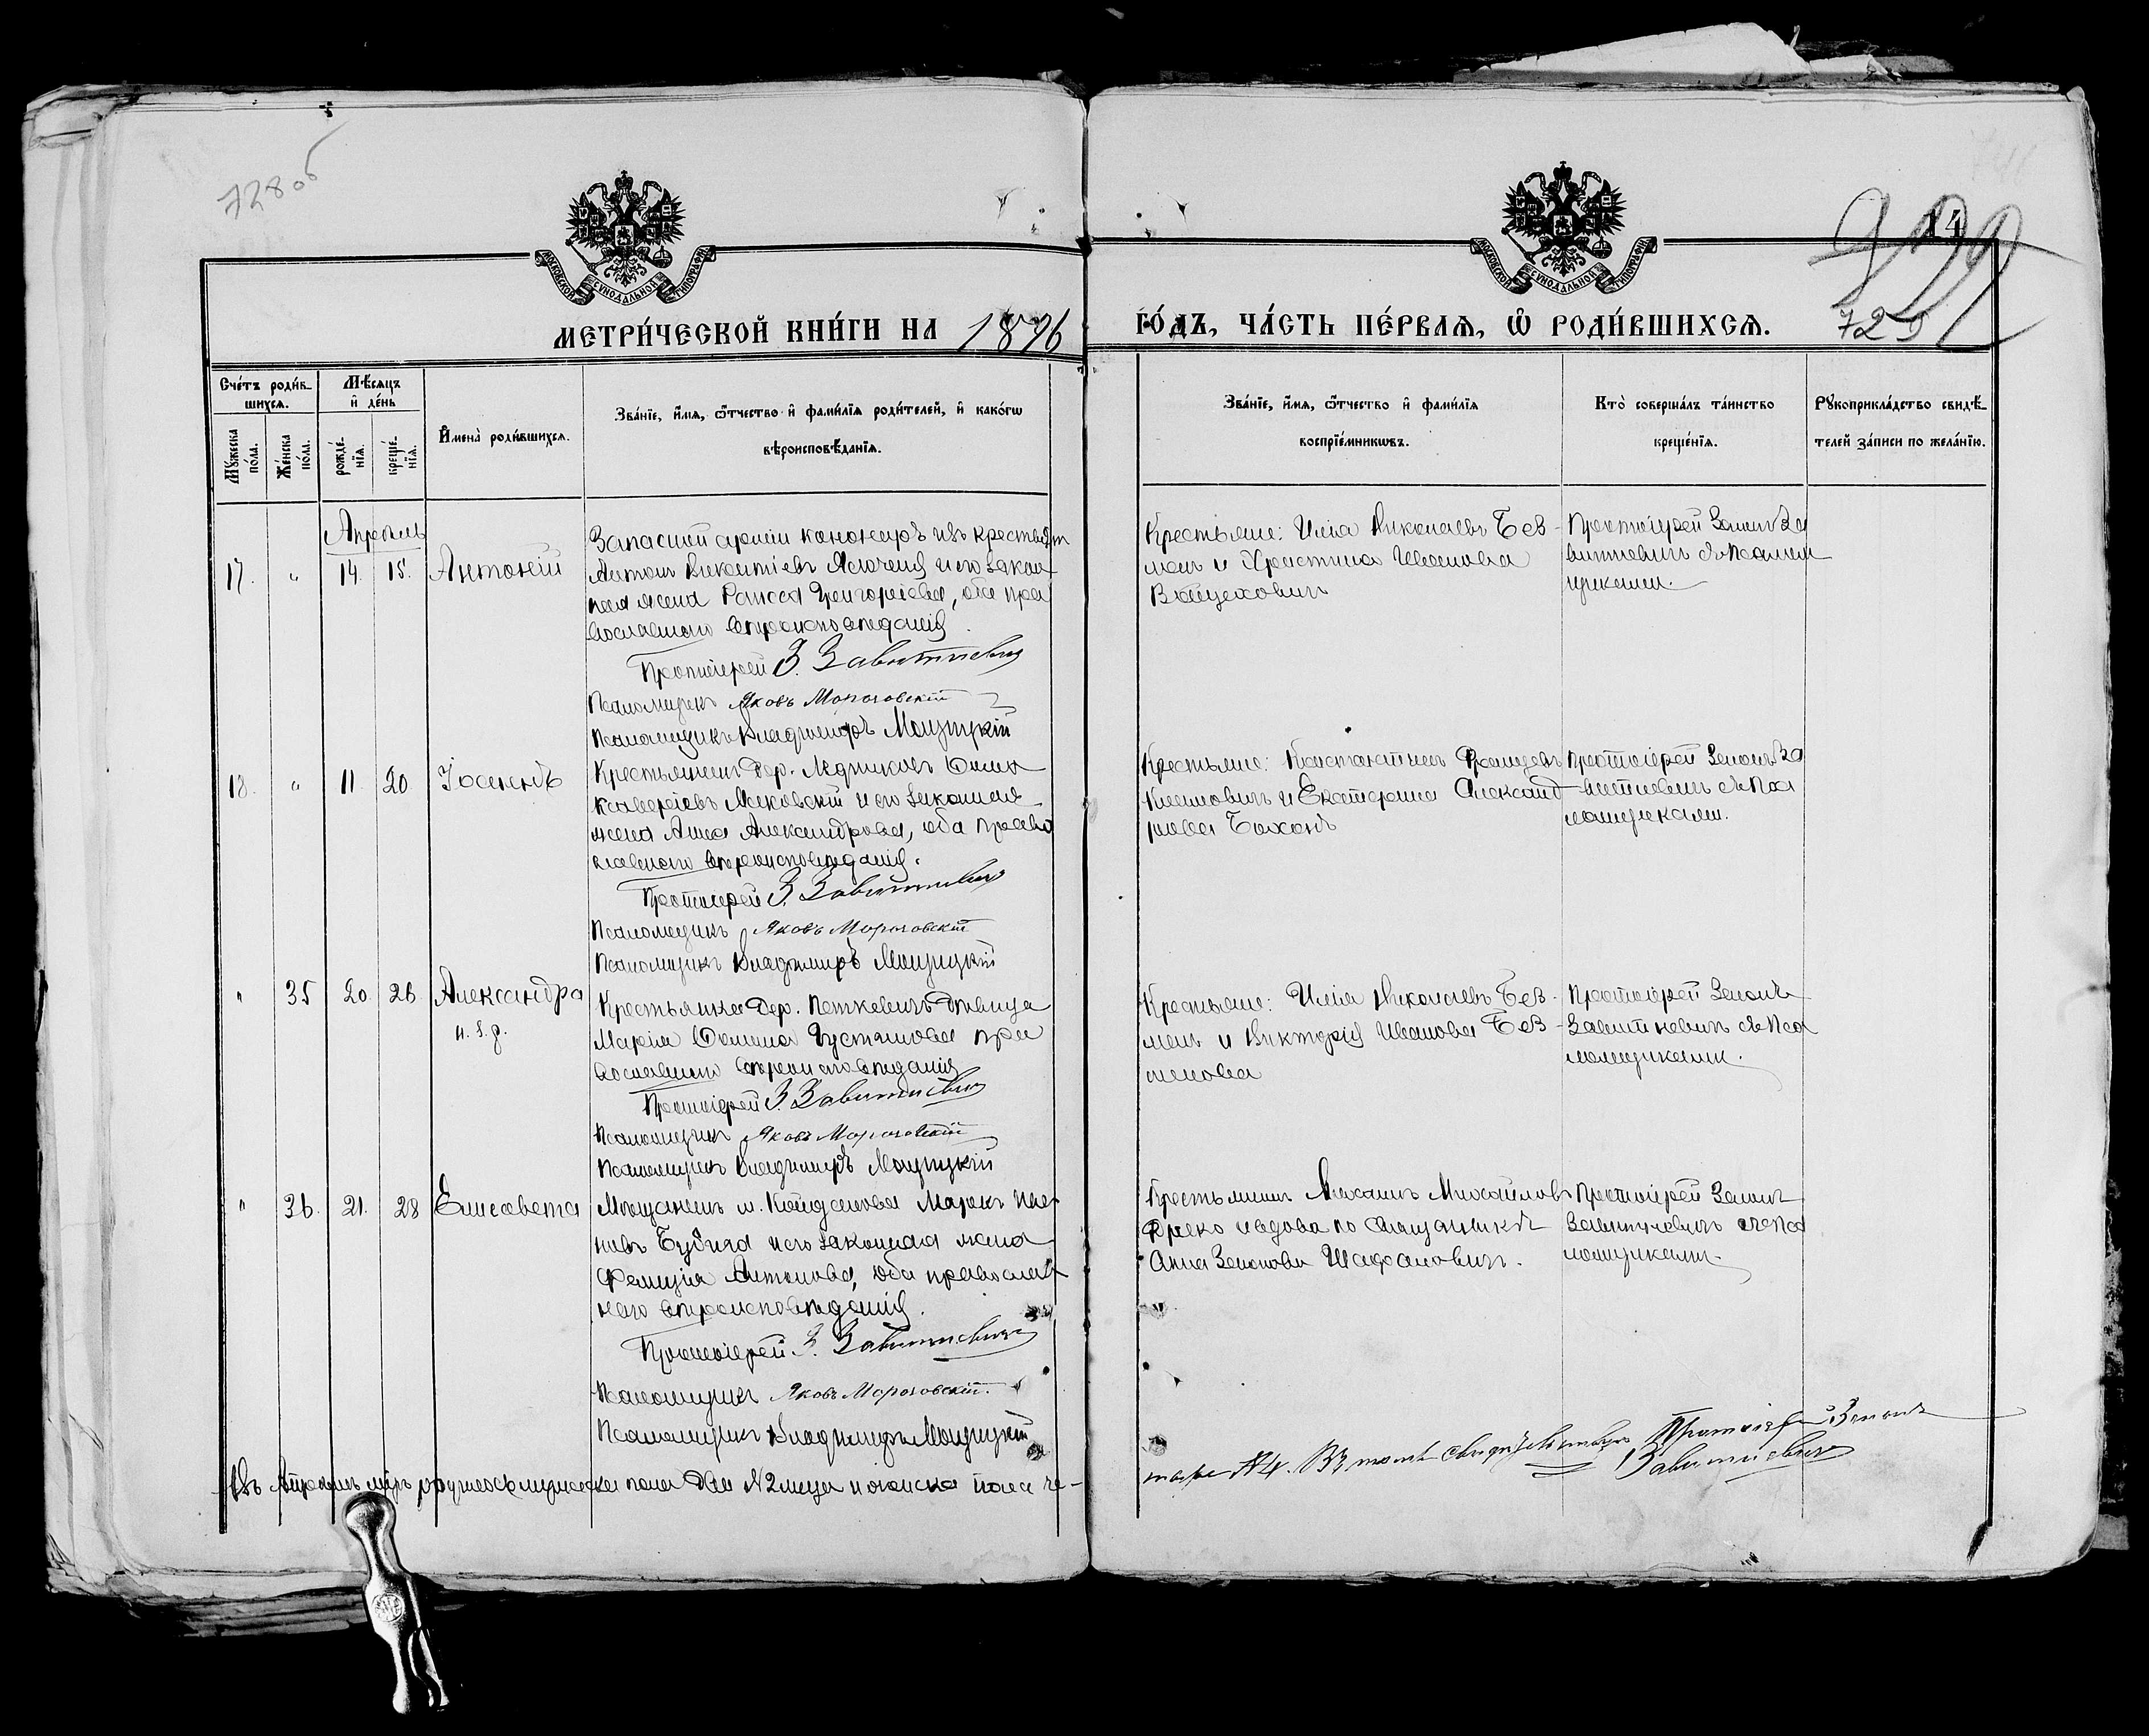 728об
14
729
МЕТРИ́ЧЕСКОЙ КНИ́ГИ НА 1896
ГО́ДЪ, ЧА́СТЬ ПЕ́РВАЯ, Ѿ РОДИ́ВШИХСЯ.
Сче́тъ роди́в-
шихся.
Мѣ́сяцъ
и҆ де́нь
Му́жеска
по́ла.
Же́нска
по́ла.
рожде́-
нїя.
креще́-
нїя.
И҆мена̀ роди́вшихся.
Зва́нїе, и҆́мя, ѻ҆́тчество и҆ фами́лїя роди́телей, и҆ како́гѡ
вѣроисповѣ́данїя.
Зва́нїе, и҆́мя, ѻ҆́тчество и҆ фами́лїя
воспрїе́мникѡвъ.
Кто̀ соверша́лъ та́инство
креще́нїя.
Рꙋкоприкла́дство свидѣ́-
телей за́писи по жела́нїю.
Апрѣль
17. " 14. 15. Антоній
Запасной арміи канониръ изъ крестьян
Антон Викентіевъ и его закон
ная жена Раиса Григоріева, оба пра
вославнаго вѣроисповѣданія.
Протоіерей З. Завитневич
Псаломщикъ Яковъ Морозовскій
Псаломщикъ Владиміръ Мощицкій
Крестьяне: Илія Николаевъ Без-
мен и Христина Иванова
Войцехович
Протоіерей Зенон За
витневич съ псалом
щиками.
18. " 11. 20 Іоаннъ
Крестьянин дер.
Ксаверіевъ и его законная
жена Анна Александрова, оба право
славнаго вѣроисповѣданія.
Протоіерей З. Завитневич
Псаломщикъ Яковъ Морозовскій
Псаломщикъ Владиміръ Мощицкій
Крестьяне: Константин
Климович и Екатерина Александ
рова Бохонъ
Протоіерей Зенон За
витневич съ пса
ломщиками.
" 35 20. 26. Александра
н. з. р.
Крестьянка дер. Петкевичъ дѣвица
Марія Густинова пра
вославнаго вѣроисповѣданія
Протоіерей З. Завитневич
Псаломщикъ Яковъ Морозовскій
Псаломщикъ Владиміръ Мощицкій
Крестьяне: Илія Николаевъ Без-
мен и Викторія Иванова Без-
менова
Протоіерей Зенонъ
Завитневич съ пса
ломщиками.
" 36. 21. 28 Елисавета
Мѣщанин м. Койданова Марк
и его законная жена
Фелиція Антонова, оба православ
наго вѣроисповѣданія.
Протоіерей З. Завитневич
Псаломщикъ Яковъ Морозовскій.
Псаломщикъ Владиміръ Мощицкій
Крестьянин Михаил Михайлов
и вдова по священникѣ
Анна Зенонова Шафалович.
Протоіерей Зенон
Завитневич съ пса
ломщиками.
Въ Апрѣлѣ м-цѣ родилось мужеска пола два № 2 лица и женска пола че-
тыре № 4. Въ томъ свидѣтельствую Протоіерей Зенонъ
Завитневич